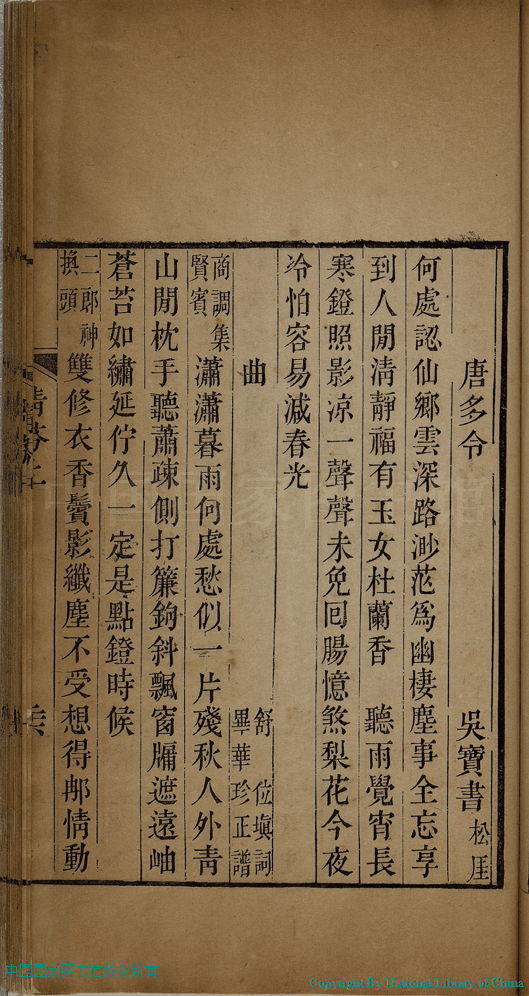 唐多令　吳寶書松厓
何處認仙鄉雲深路渺茫爲幽棲塵事全忘享
到人閒清靜福有玉女杜蘭香　聽雨覺宵長
寒鐙照影凉一聲聲未免回腸憶煞梨花今夜
冷怕容易減春光
曲　舒位塡詞
畢華珍正譜
商調集賢賓瀟瀟暮雨何處愁似一片殘秋人外靑
山閒枕手聽蕭疎側打簾鉤斜飄窗牖遮遠岫
蒼苔如繡延佇久一定是點鐙時候
二郎神換頭雙修衣香鬢影纖塵不受想得那情動
Copyright By National Library of China